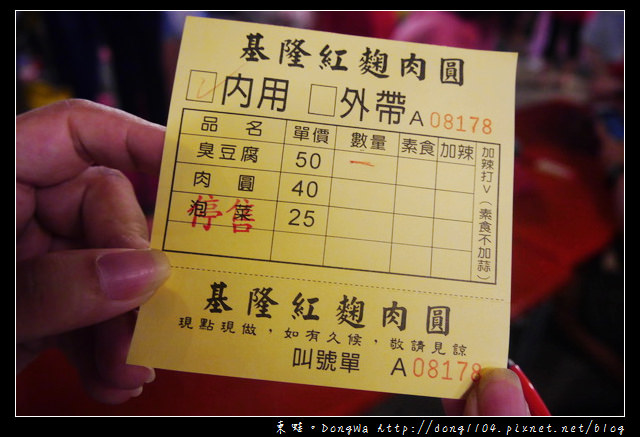 基隆紅麴肉圓
☑內用 □外帶 A 08178
品名 單價 數量 素食 加辣 加辣打V(素食不加蒜)
臭豆腐 50 一
肉圓 40
泡菜 25 停售
基隆紅麴肉圓
現點現做,如有久候,敬請見諒
叫號單 A 08178
東蛙。DongWa http://dong1104.pixnet.net/blog